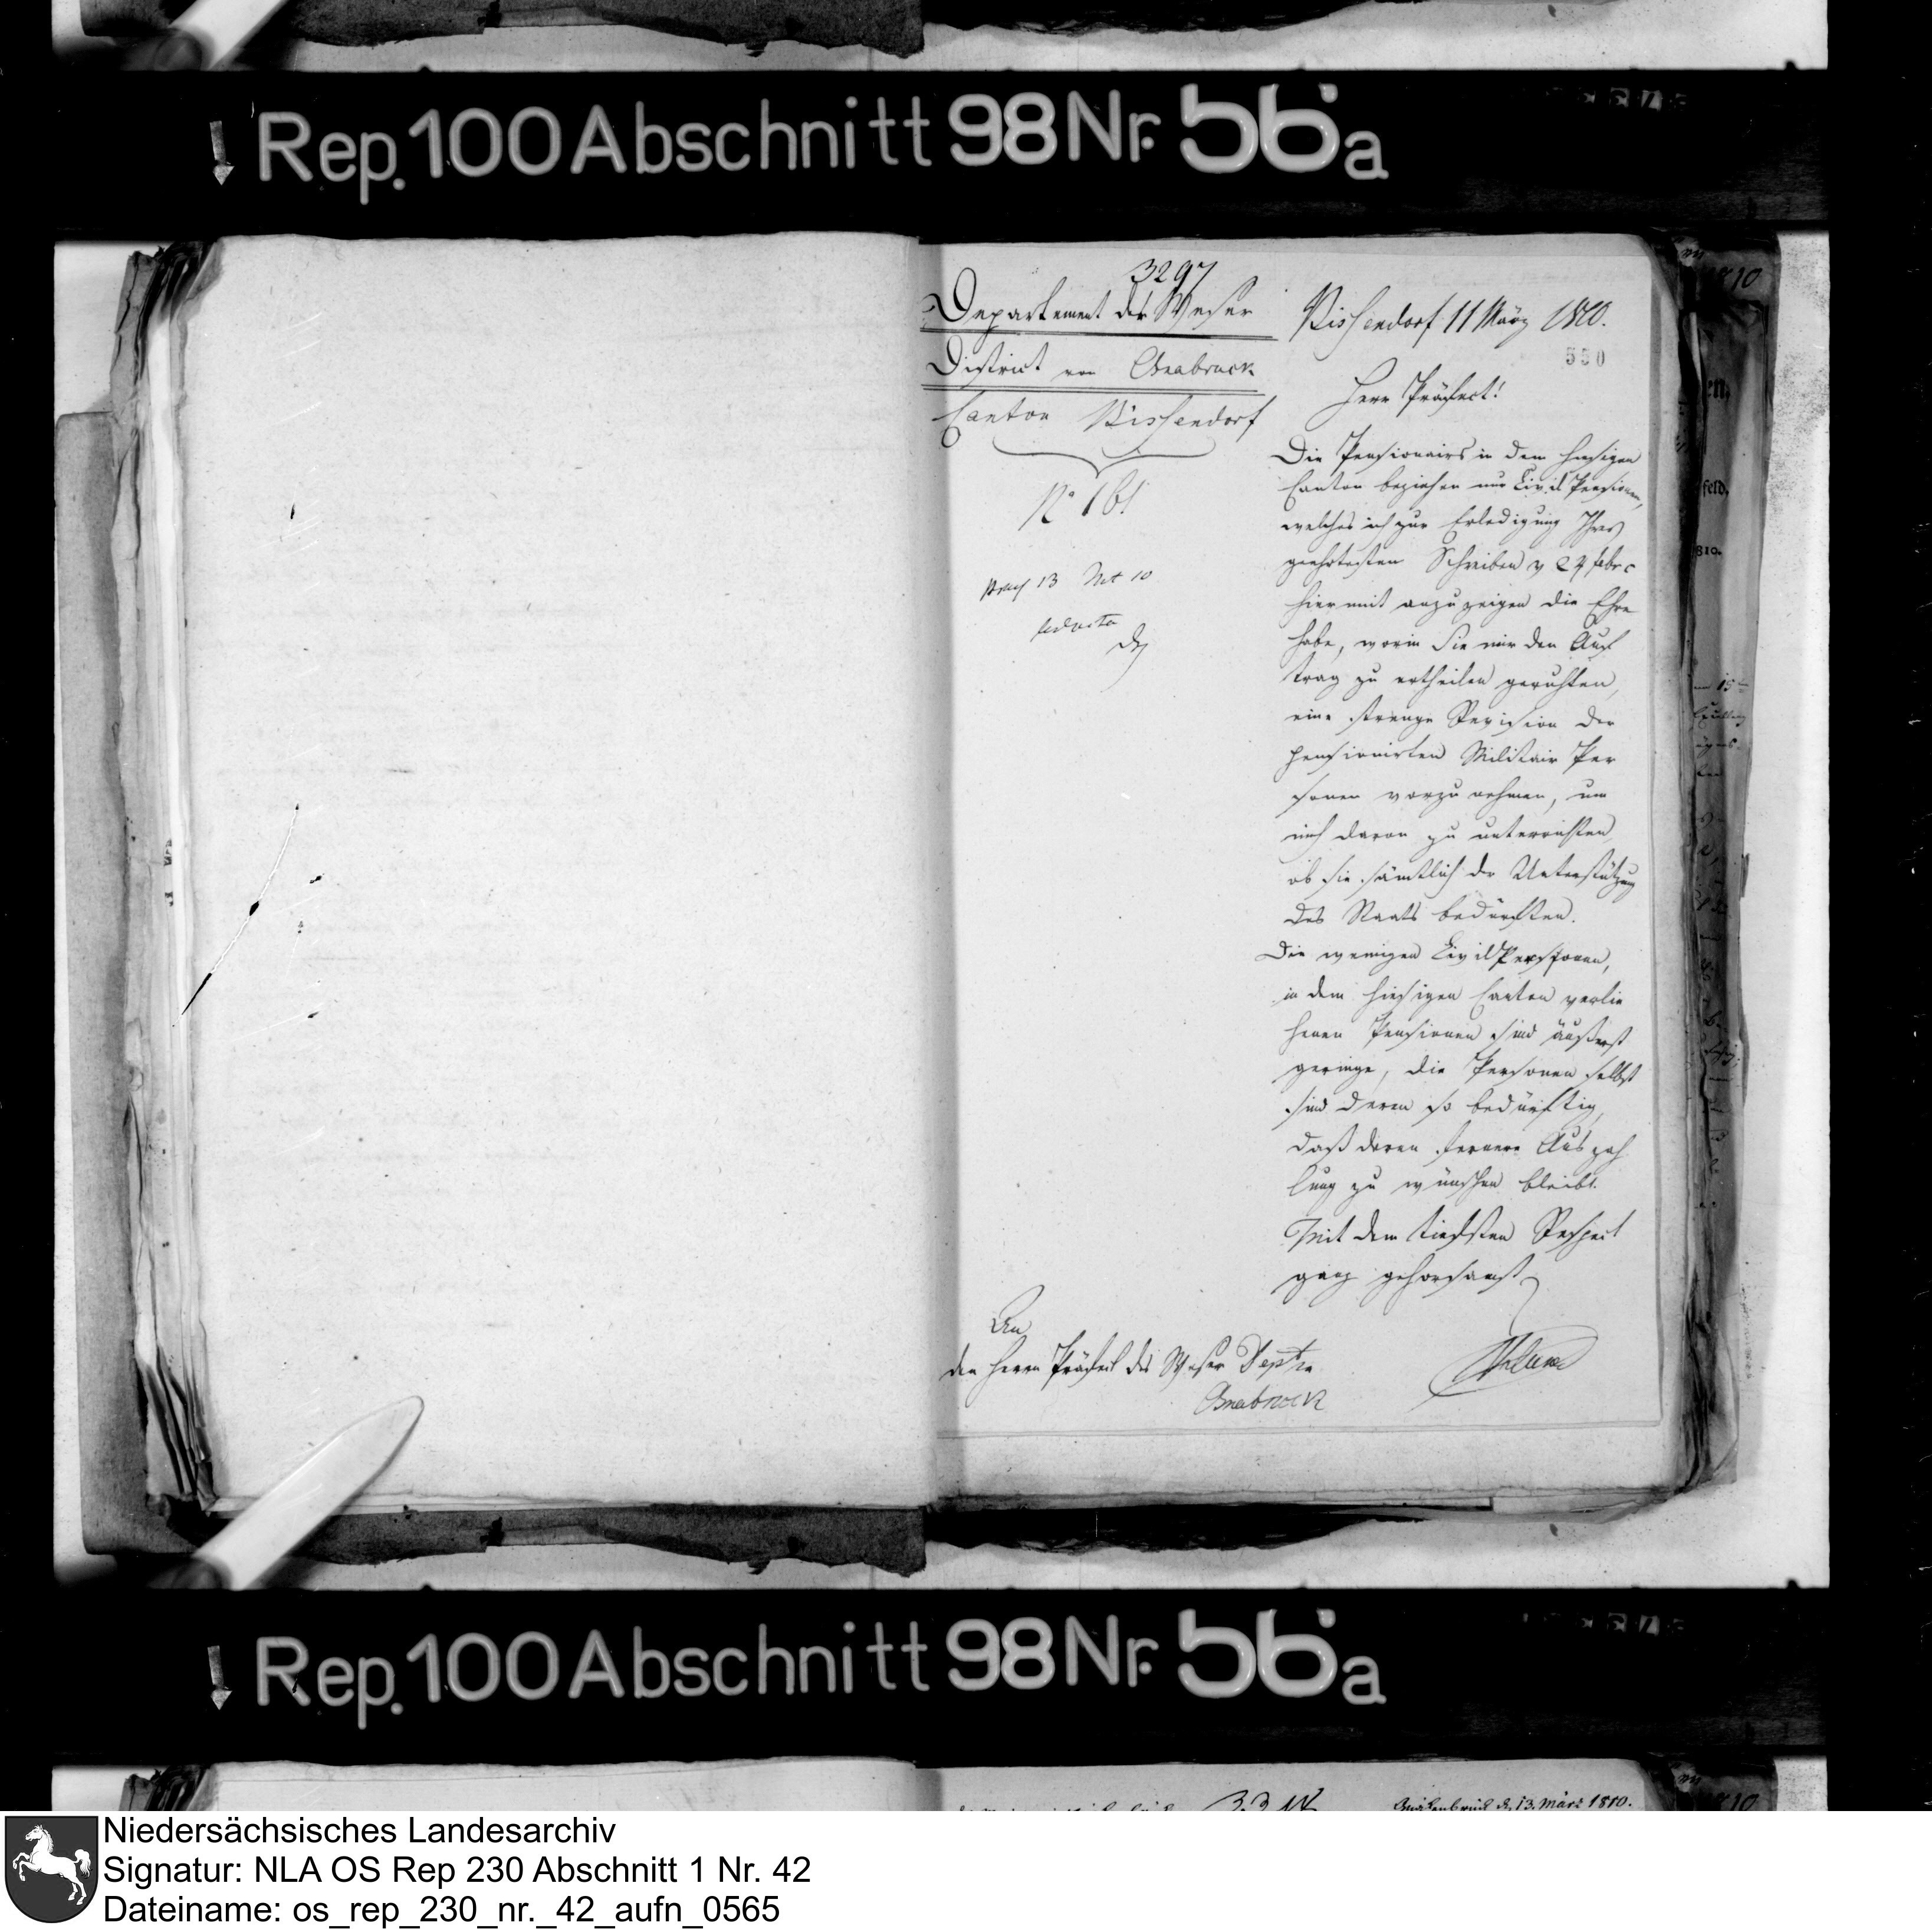 Rep. 100 Abschnitt 98 Nr. 56a
3297
Departement der Weser
District von Osnabruck
Canton Bissendorf
N° 161
Praes 13 Mrt 10
ad acta
Bissendorf 11 März 1810.
550
Herr Präfect!
Die Pensionairs in dem hiesigen
Canton beziehen nur Civil Pensionen,
welches ich zur Erledigung Ihres
geehrtesten Schreiben v 24 febr c
hiermit anzuzeigen die Ehre
habe, worin Sie mir den Auf
trag zu ertheilen geruhten,
eine strenge Revision der
pensionirten Militair Per
sonen vorzunehmen, um
mich davon zu unterrichten,
ob sie sämtlich der Unterstützung
des Staats bedürften.
Die wenigen Civil Personen,
in dem hiesigen Canton verlie
henen Pensionen sind äußerst
geringe, die Personen selbst
sind deren so bedürftig,
daß deren fernere Auszah
lung zu wünschen bleibt.
Mit dem tiefsten Respect
ganz gehorsamst
An
den Herrn Präfect des Weser Depts
Osnabruck
Rep. 100 Abschnitt 98 Nr. 56a
d. 13. März 1810.
Niedersächsisches Landesarchiv
Signatur: NLA OS Rep 230 Abschnitt 1 Nr. 42
Dateiname: os_rep_230_nr._42_aufn_0565